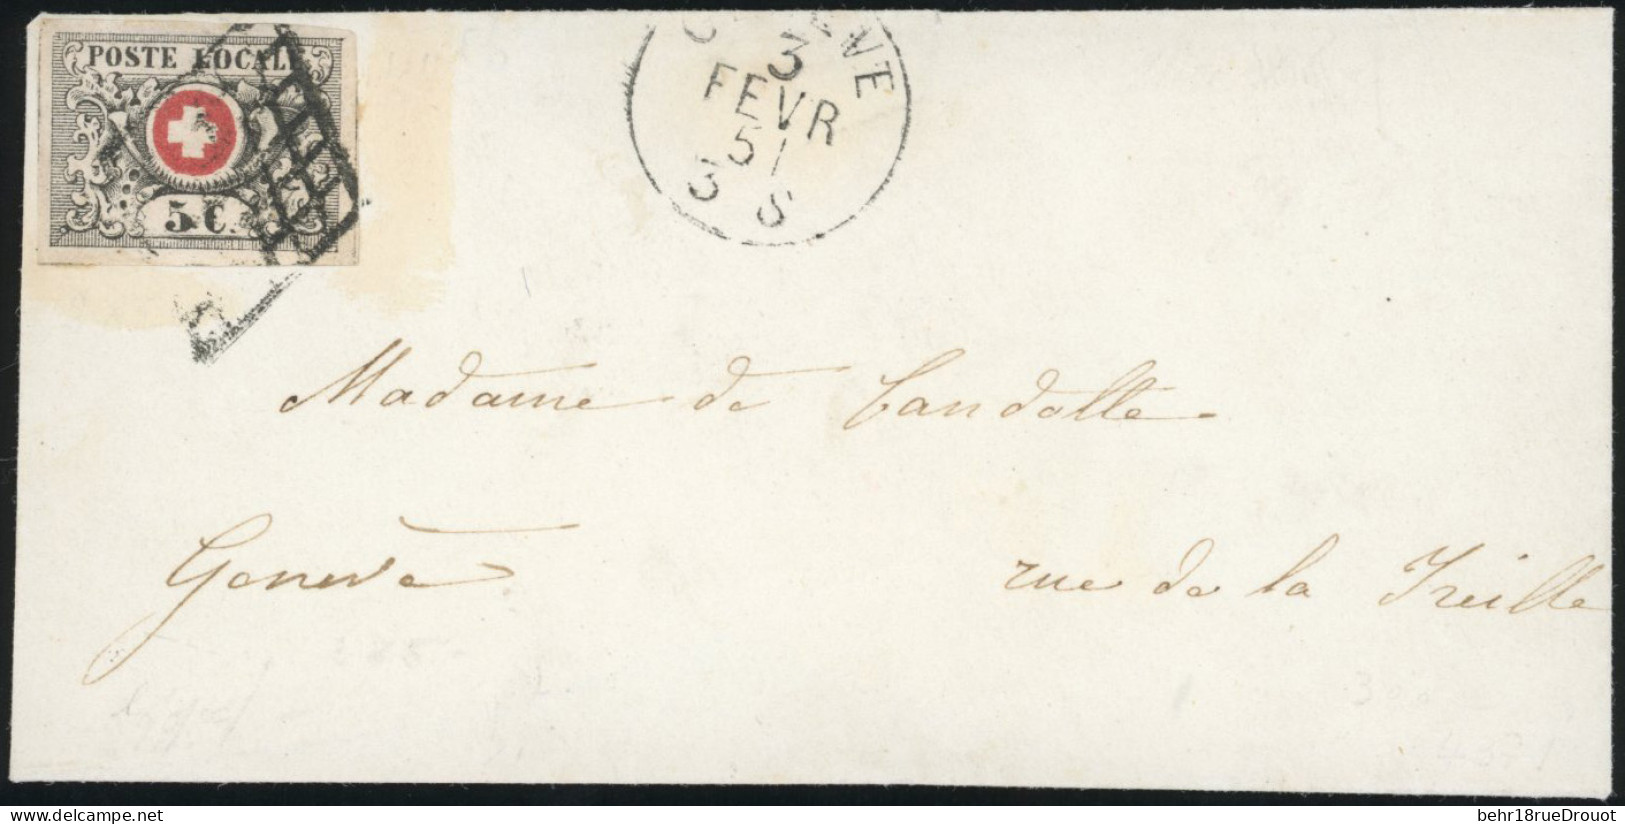 POSTE LOCALE
5 C.
3
FEVR
51
3 S
Madame de Candolle
Genève
rue de la Treille
behr18rueDrouot